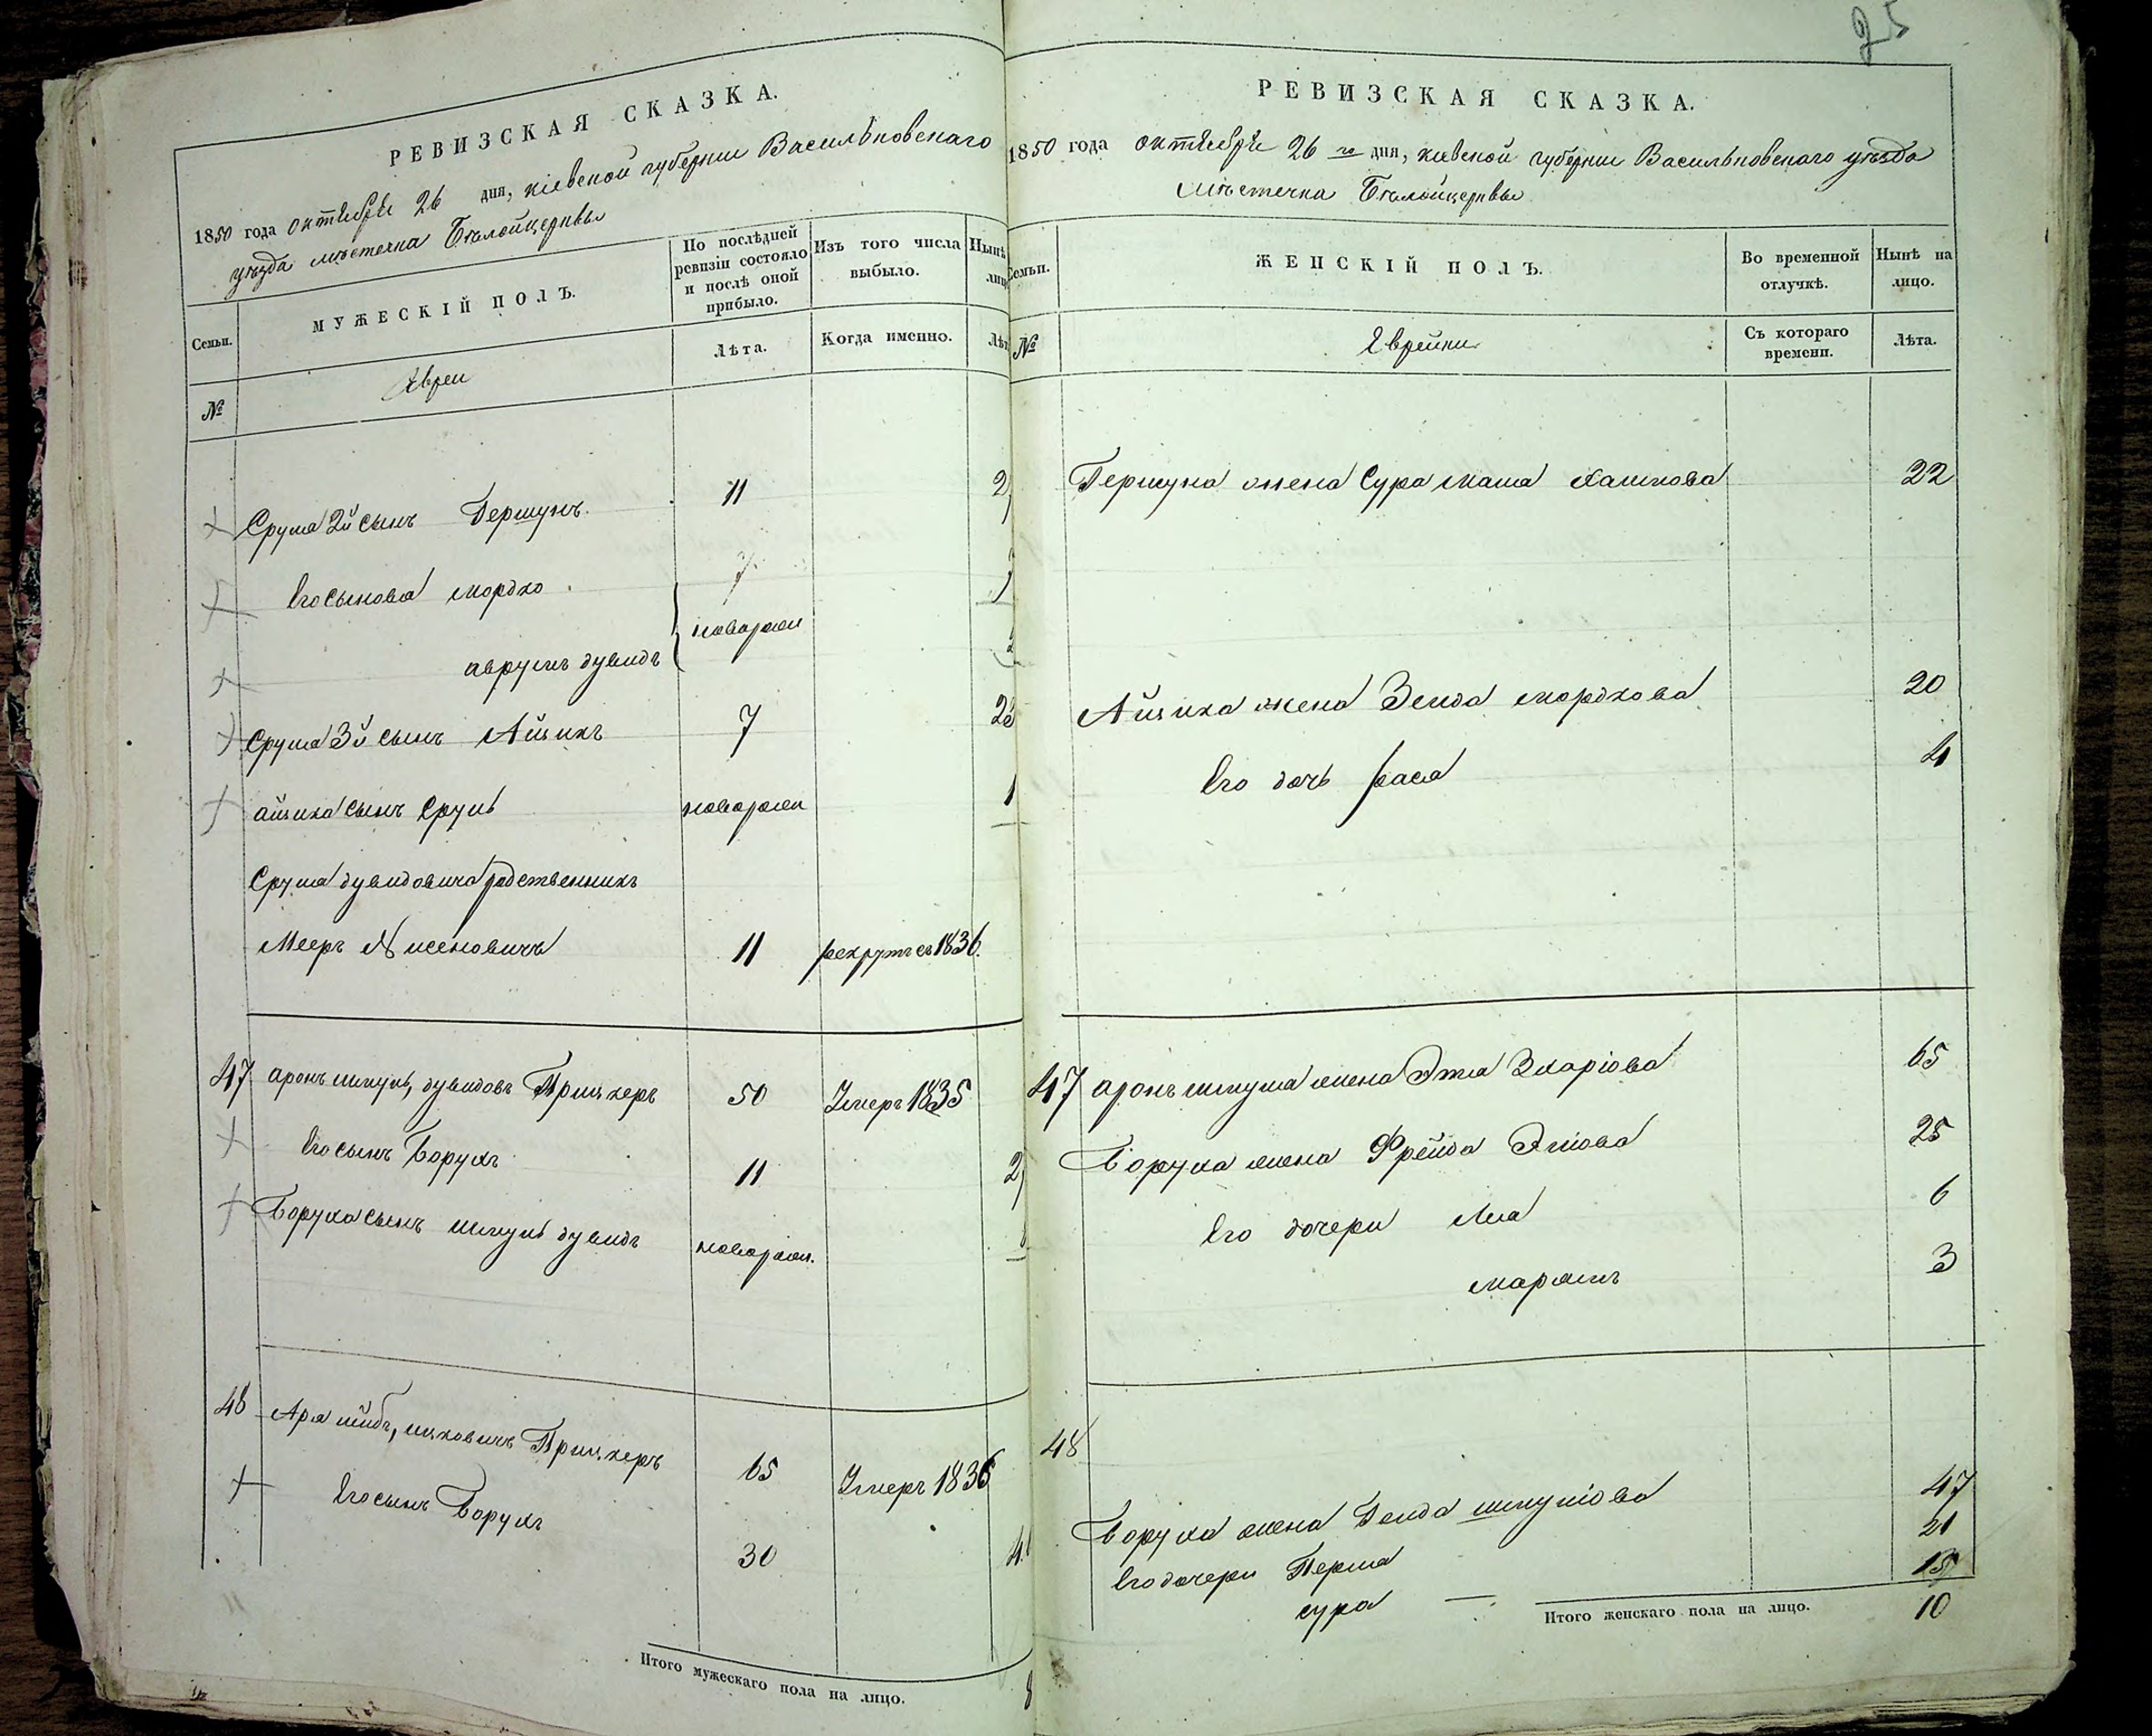 25
РЕВИЗСКАЯ СКАЗКА.
1850 года октября 26 дня, кіевской губерніи Васильковскаго
уѣзда мѣстечка Бѣлойцеркви
Семьи.
МУЖЕСКІЙ ПОЛЪ.
По послѣдней
ревизіи состояло
и послѣ оной
прибыло.
Изъ того числа
выбыло.
Нынѣ
лиц
№
Евреи
Лѣта.
Когда именно.
Лѣт
Сруля 2й сынъ Гершунъ 11 2
Его сыновья мордко
аврумъ дувидъ новорож
Сруля 3й сынъ Айзикъ 7 23
айзика сынъ Сруль новорож 1
Сруля дувидовича родственникъ
Мееръ Нисеновичъ 11 рекрутъ съ 1836.
47 аронъ шмуль, дувидовъ Прицкеръ 50 Умеръ 1835
Его сынъ Борухъ 11 2
Боруха сынъ шмуль дувидъ новорож.
48 Аря лейбъ, ицковичъ Прицкеръ 65 Умеръ 1836
Его сынъ Борухъ 30 4
Итого мужескаго пола на лицо. 8
РЕВИЗСКАЯ СКАЗКА.
1850 года октября 26 го дня, кіевской губерніи Васильковскаго уѣзда
мѣстечка Бѣлойцеркви
Семьи.
ЖЕНСКІЙ ПОЛЪ.
Во временной
отлучкѣ.
Нынѣ на
лицо.
№
Еврейки
Съ котораго
времени.
Лѣта.
Гершуна жена Сура маша 22
Айзика жена Зелда мордкова 20
Его дочь рася 4
47 аронъ шмуля жена Этля 65
Боруха жена Фрейда 25
Его дочери Лея 6
марямъ 3
48
Боруха жена Гелда шмуліова 47
Его дочери Перля 21
сура 15
Итого женскаго пола на лицо. 10